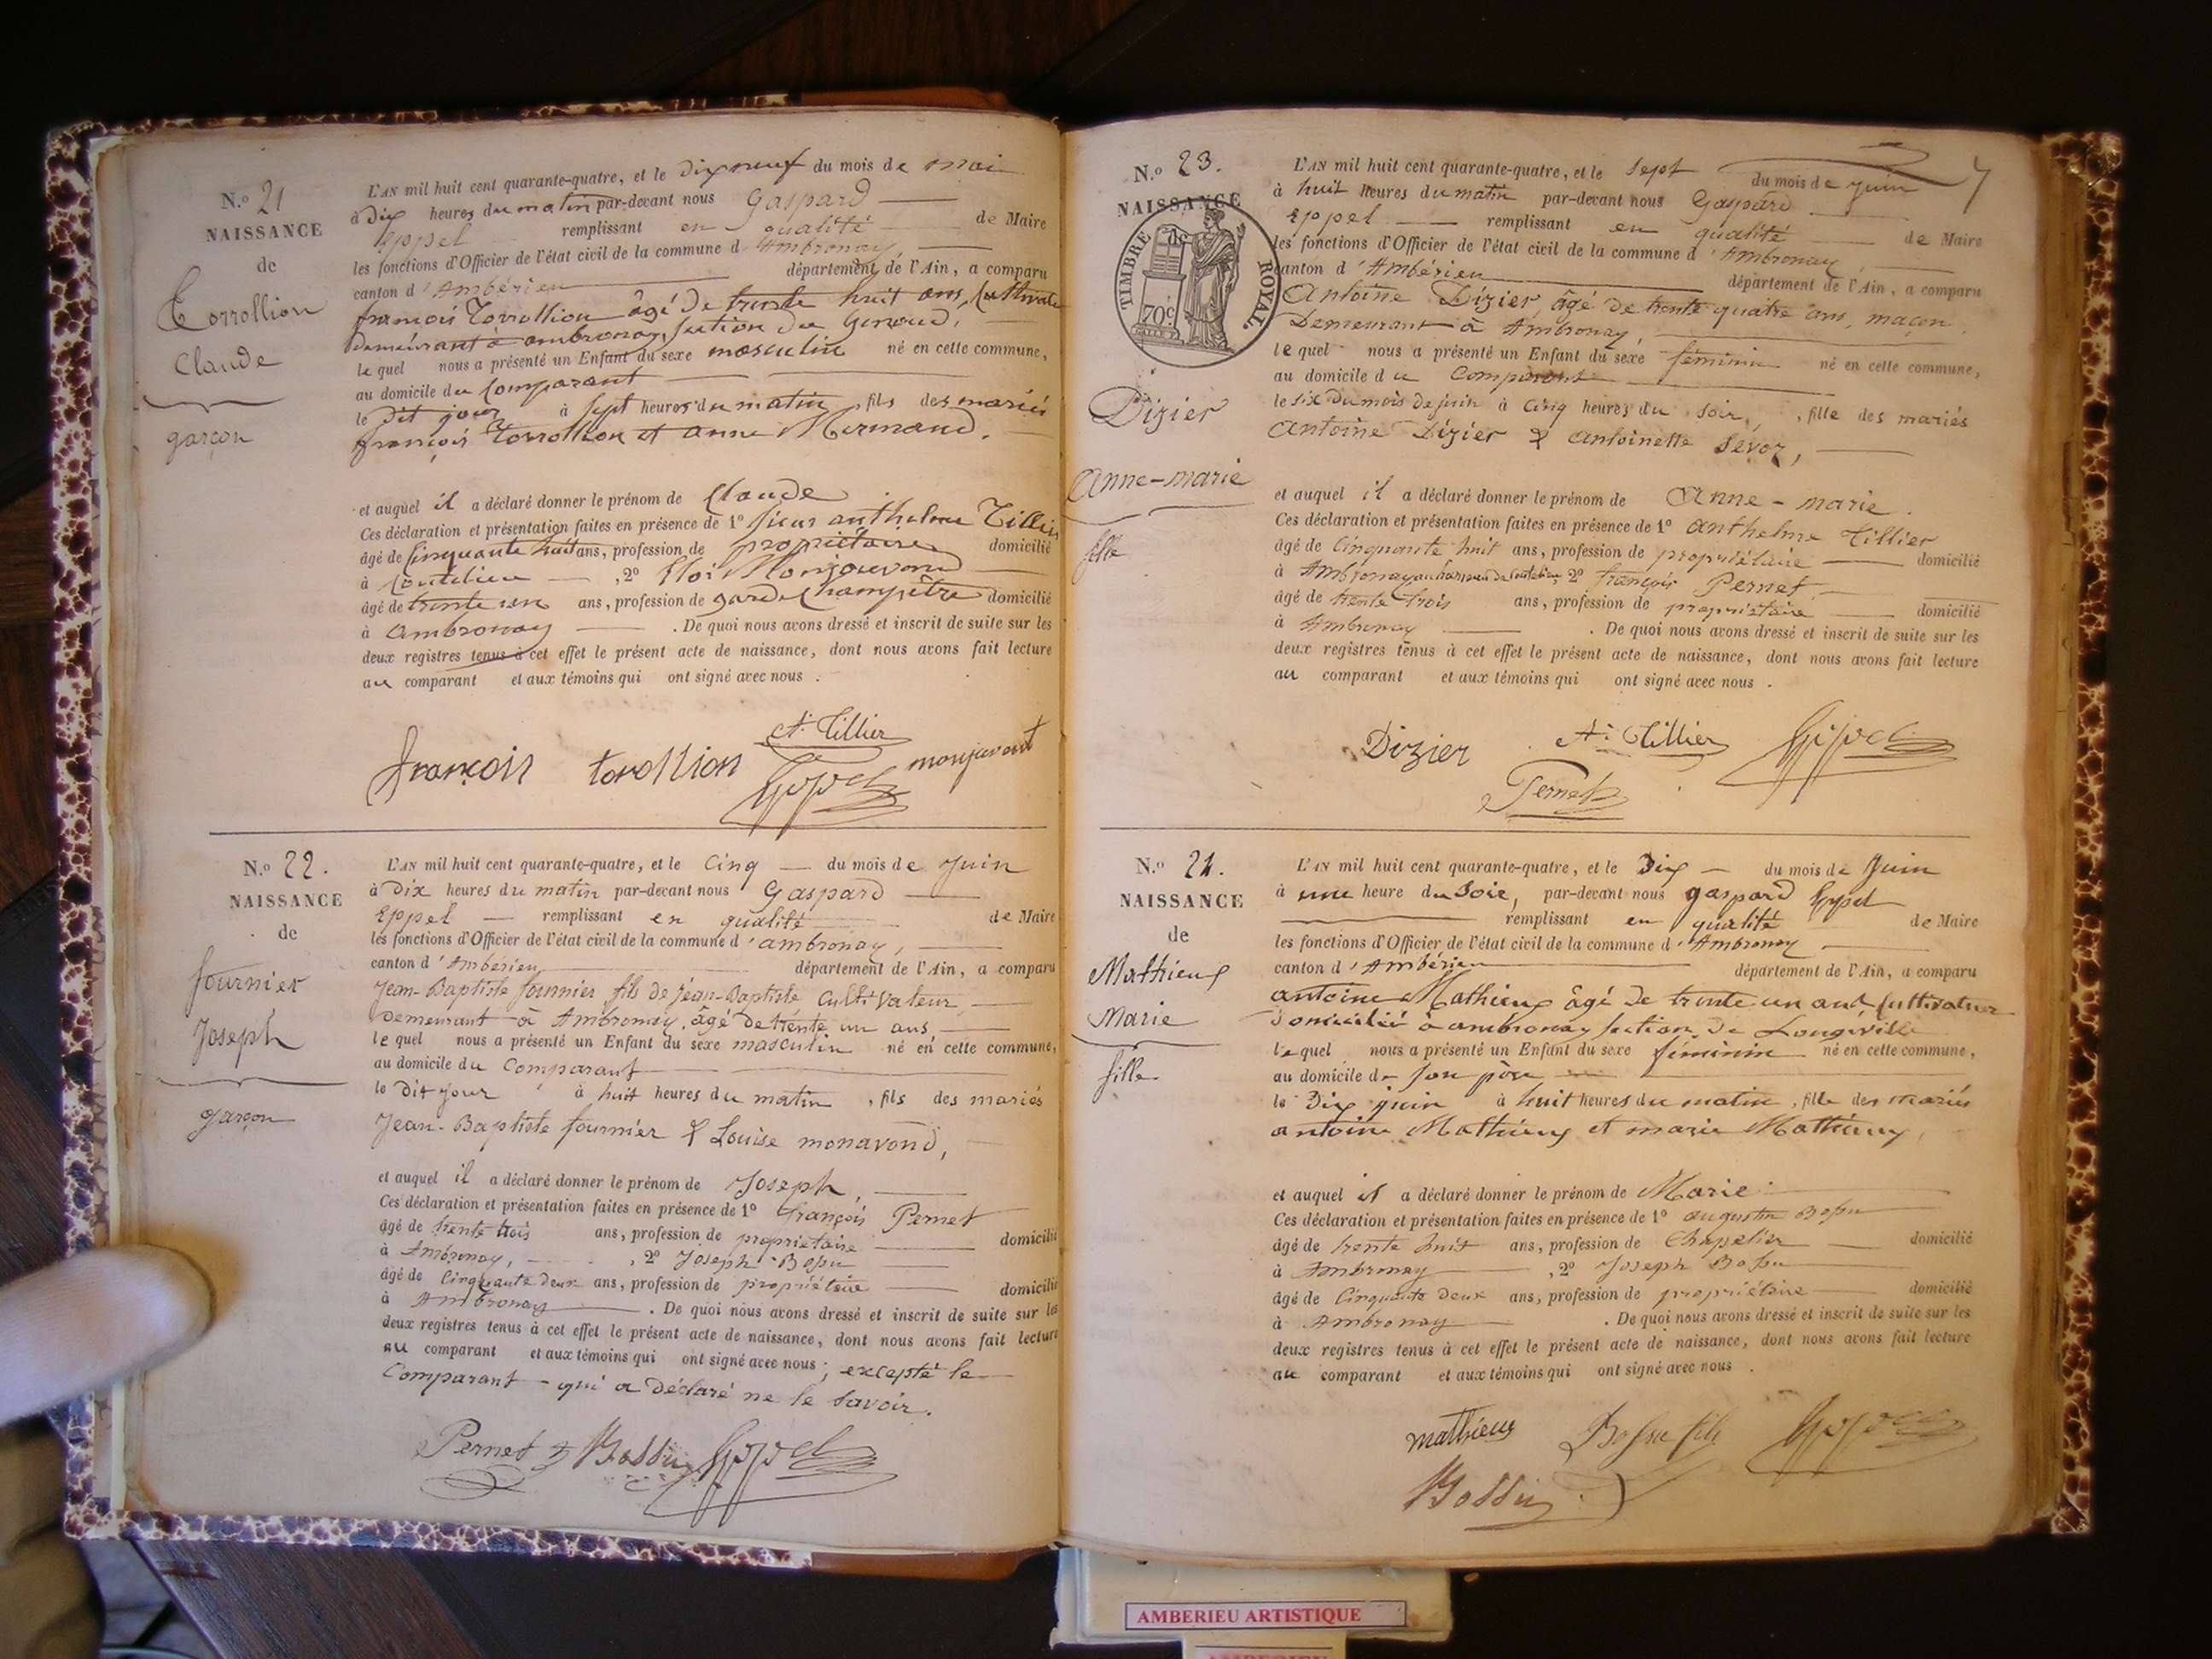 N.º 21
NAISSANCE
de
Torrollion
Claude
garçon
L'AN mil huit cent quarante-quatre, et le dix neuf du mois de mai
à Dix heures du matin par-devant nous Gaspard
Eppel remplissant en qualité de Maire
les fonctions d'Officier de l'état civil de la commune d'Ambronay,
canton d'Ambérieu département de l'Ain, a comparu
françois Torrollion âgé de trente huit ans,
demeurant à ambronay, section du Genoud,
lequel nous a présenté un Enfant du sexe masculin né en cette commune,
au domicile du Comparant
le dit jour à sept heures du matin, fils des mariés
françois Torrollion et anne Mermand.
et auquel il a déclaré donner le prénom de Claude
Ces déclaration et présentation faites en présence de 1º sieur anthelme Tillier
âgé de Cinquante huit ans, profession de propriétaire domicilié
à Coutelieu, 2º Eloi Monjouvend
âgé de trente un ans, profession de garde Champêtre domicilié
à ambronay. De quoi nous avons dressé et inscrit de suite sur les
deux registres tenus à cet effet le présent acte de naissance, dont nous avons fait lecture
au comparant et aux témoins qui ont signé avec nous.
françois torollion At Tillier monjuvent
Eppel
N.º 22.
NAISSANCE
de
fournier
Joseph
garçon
L'AN mil huit cent quarante-quatre, et le Cinq du mois de Juin
à Dix heures du matin par-devant nous Gaspard
Eppel remplissant en qualité de Maire
les fonctions d'Officier de l'état civil de la commune d'ambronay,
canton d'Ambérieu département de l'Ain, a comparu
Jean-Baptiste fournier fils de jean-Baptiste Cultivateur
demeurant à Ambronay, âgé de trente un ans
lequel nous a présenté un Enfant du sexe masculin né en cette commune,
au domicile du Comparant
le Dit jour à huit heures du matin, fils des mariés
Jean-Baptiste fournier & Louise monavond,
et auquel il a déclaré donner le prénom de Joseph,
Ces déclaration et présentation faites en présence de 1º françois Pernet
âgé de trente trois ans, profession de proprietaire domicilié
à Ambronay, 2º Joseph Bossu
âgé de Cinquante deux ans, profession de propriétaire domicilié
à Ambronay. De quoi nous avons dressé et inscrit de suite sur les
deux registres tenus à cet effet le présent acte de naissance, dont nous avons fait lecture
au comparant et aux témoins qui ont signé avec nous; excepté le
Comparant qui a déclaré ne le savoir.
Pernet Bossu Eppel
N.º 23.
NAISSANCE
TIMBRE ROYAL.
de
70 c
Dizier
Anne-marie
fille
7
L'AN mil huit cent quarante-quatre, et le sept du mois de juin
à huit heures du matin par-devant nous Gaspard
Eppel remplissant en qualité de Maire
les fonctions d'Officier de l'état civil de la commune d'Ambronay,
canton d'Ambérieu département de l'Ain, a comparu
Antoine Dizier, âgé de trente quatre ans, maçon
Demeurant à Ambronay,
lequel nous a présenté un Enfant du sexe féminin né en cette commune,
au domicile du Comparant
le six du mois de juin à Cinq heures du soir, fille des mariés
Antoine Dizier & Antoinette Sevoz,
et auquel il a déclaré donner le prénom de Anne-marie.
Ces déclaration et présentation faites en présence de 1º anthelme Tillier
âgé de Cinquante huit ans, profession de propriétaire domicilié
à Ambronay au hameau de Coutelieu, 2º françois Pernet,
âgé de trente trois ans, profession de propriétaire domicilié
à Ambronay. De quoi nous avons dressé et inscrit de suite sur les
deux registres tenus à cet effet le présent acte de naissance, dont nous avons fait lecture
au comparant et aux témoins qui ont signé avec nous.
Dizier At Tillier Eppel
Pernet
N.º 24.
NAISSANCE
de
Mathieux
Marie
fille
L'AN mil huit cent quarante-quatre, et le Dix du mois de Juin
à une heure du Soir, par-devant nous gaspard Eppel
remplissant en qualité de Maire
les fonctions d'Officier de l'état civil de la commune d'Ambronay
canton d'Ambérieu département de l'Ain, a comparu
antoine Mathieux âgé de trente un ans Cultivateur
domicilié à ambronay section de Longeville
lequel nous a présenté un Enfant du sexe féminin né en cette commune,
au domicile de son père
le Dix juin à huit heures du matin, fille des mariés
antoine Mathieux et marie Mathieux,
et auquel il a déclaré donner le prénom de Marie
Ces déclaration et présentation faites en présence de 1º augustin Bossu
âgé de trente huit ans, profession de Chapelier domicilié
à Ambronay, 2º Joseph Bossu
âgé de Cinquante deux ans, profession de propriétaire domicilié
à Ambronay. De quoi nous avons dressé et inscrit de suite sur les
deux registres tenus à cet effet le présent acte de naissance, dont nous avons fait lecture
au comparant et aux témoins qui ont signé avec nous.
mathieux Bossu fils Eppel
Bossu
AMBERIEU ARTISTIQUE